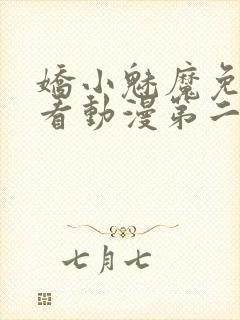 嬌小魅魔免
看動漫第二
七月七